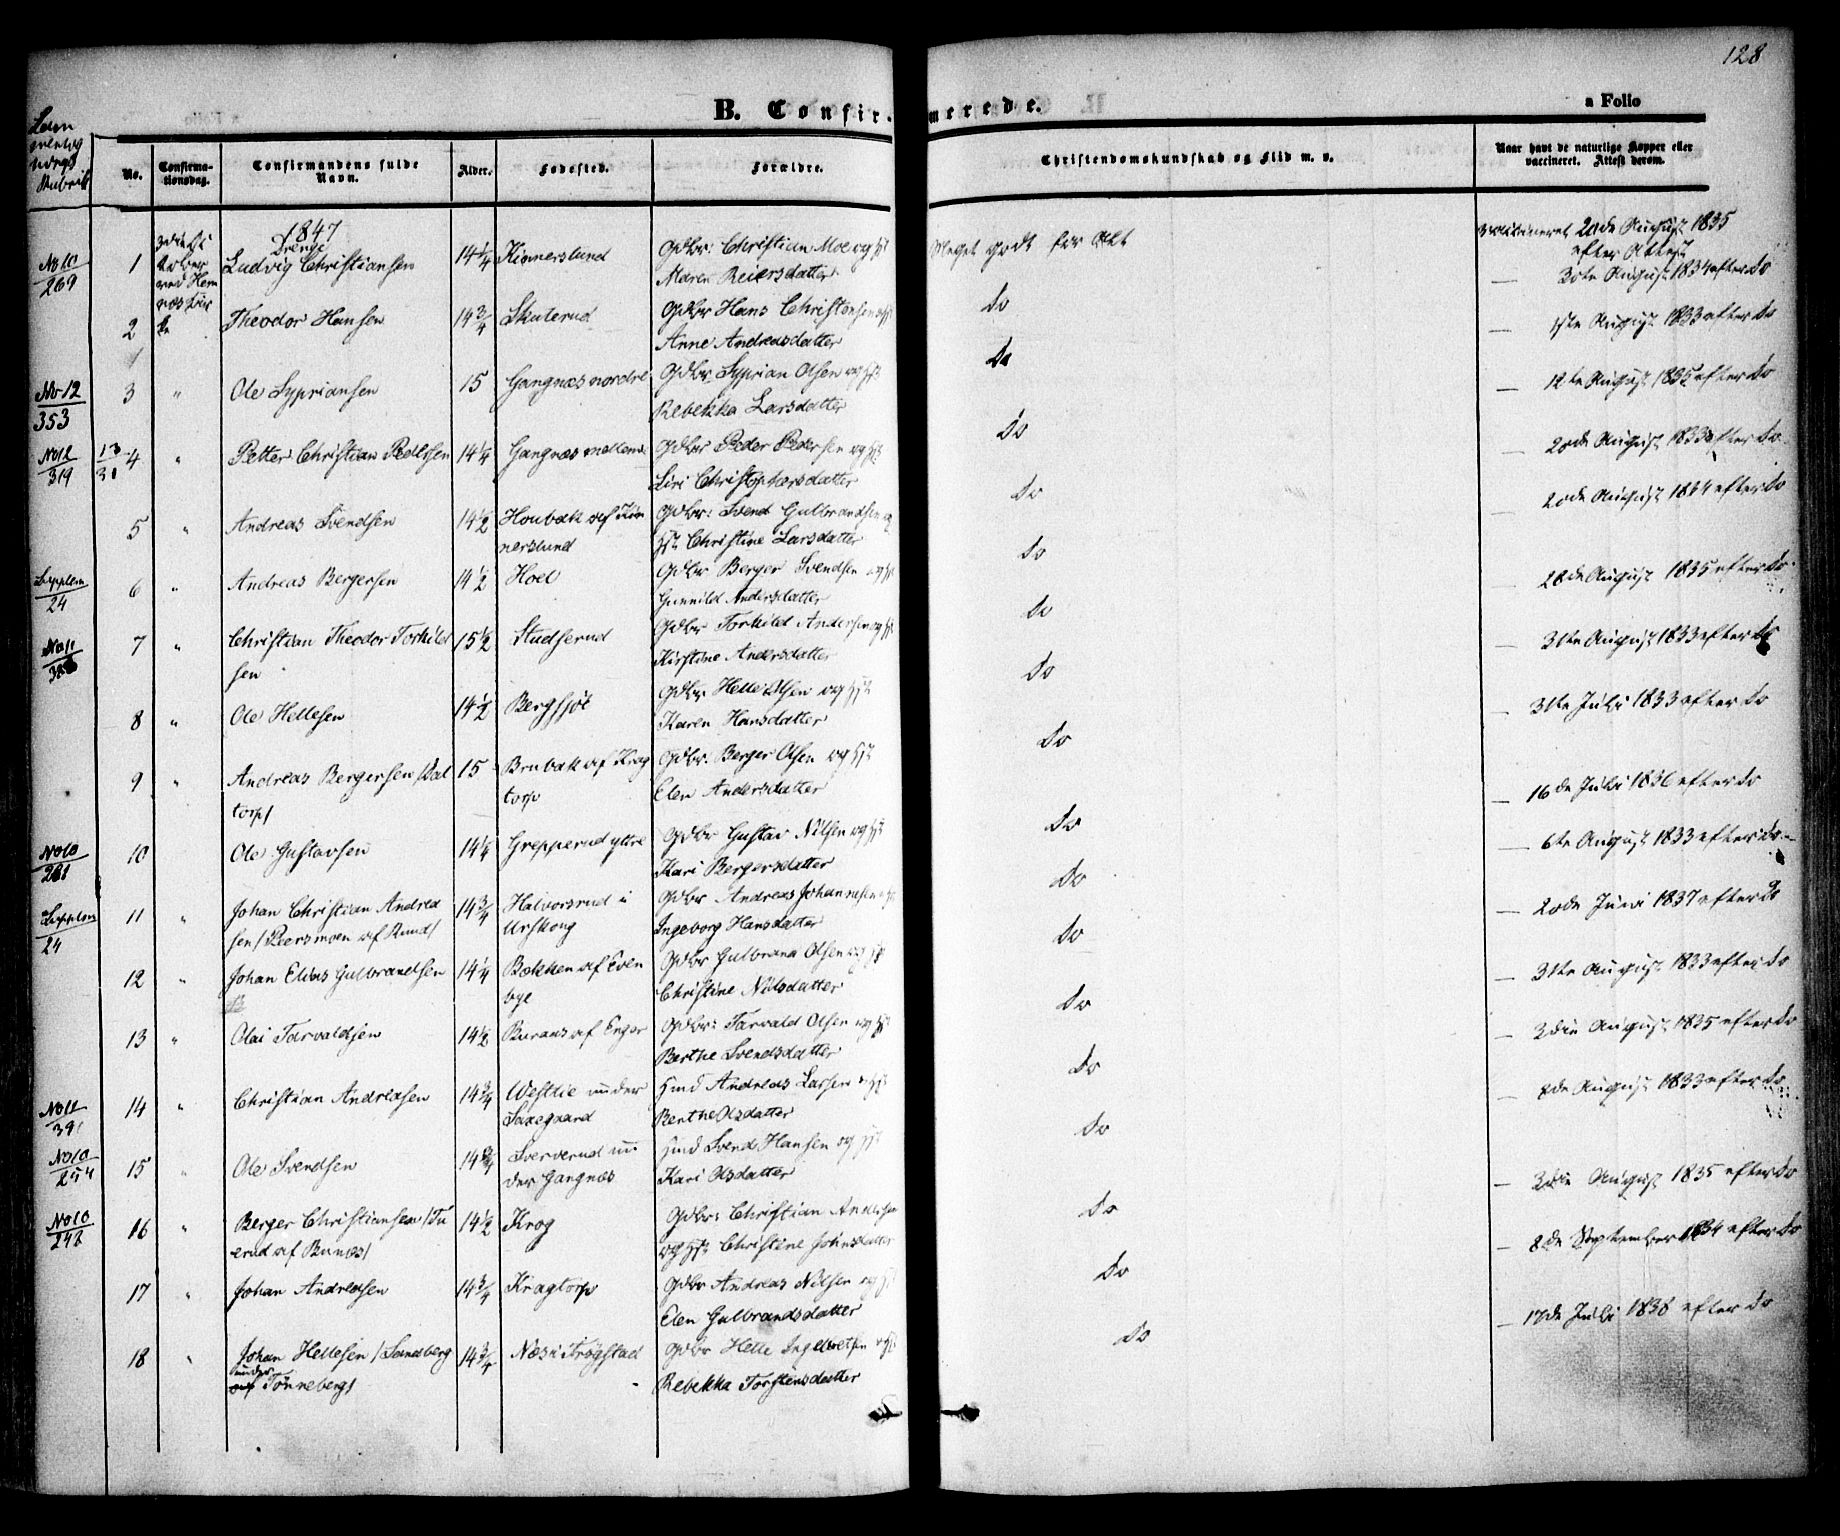 128
B. Confir-
merede.
a Folio
No.
Confirma-
tionsdag.
Confirmandens fulde
Navn.
Alder.
Fødested.
Forældre.
Christendomskundskab og Flid m. v.
Naar havt de naturlige Kopper eller
vaccineret. Attest derom.
1847
Drenge
No 10
269
1
Ludvig Christiansen
14 1/4
Kinnerslund
Gdbr: Christian Moe og Hst
Maren Reiersdatter
Meget godt for Alt
vaccineret 20de August 1835
efter Attest
2
Theodor Hansen
14 3/4
Skuterud
Gdbr Hans Christensen og Hst
Anne Andreasdatter
Do
— 30te August 1834 efter Do
No 12
353
3
"
Ole Sypriansen
15
Gangnæs nordre
Gdbr Syprian Olsen og Hst
Rebekka Larsdatter
Do
— 1ste August 1833 efter Do
No 12
319
13
31
4
"
Petter Christian Pedersen
14 1/4
Gangnæs mellem
Gdbr Peder Pedersen og Hst
Siri Christophersdatter
Do
— 12te August 1835 efter Do
5
"
Andreas Svendsen
14 1/2
Houbæk af Kin
nerslund
Gdbr: Svend Gulbrandsen og
Hst Christine Larsdatter
Do
— 20de August 1833 efter Do
Supplem
24
6
"
Andreas Bergersen
14 1/2
Hoel
Gdbr Berger Svendsen og Hst
Gunnild Andersdatter
Do
— 20de August 1834 efter Do
No 11
7
"
Christian Theodor Torkild
sen
15 1/2
Studserud
Gdbr Torkild Andersen og Hst
Kirstine Andersdatter
Do
— 28de August 1835 efter Do
8
"
Ole Hellesen
14 1/2
Bergsjøt
Gdbr Helle Olsen og Hst
Karen Hansdatter
Do
— 31te August 1833 efter Do
9
"
Andreas Bergersen
torp/
15
Brubæk af Krog
torp
Gdbr. Berger Olsen og Hst
Elen Andersdatter
Do
— 31te Juli 1833 efter Do
No 10
261
10
Ole Gustavsen
14 1/4
Grepperud yttre
Gdbr Gustav Nilsen og Hst
Kari Bergersdatter
Do
— 16de Juli 1836 efter Do
Supplem
24
11
"
Johan Christian Andrea
sen /Peersmoen af Rund/
14 3/4
Halvorsrud i
Urskoug
Gdbr Andreas Johannesen og Hst
Ingeborg Hansdatter
Do
— 6te August 1833 efter Do
12
"
Johan Elias Gulbrandsen
14 1/4
Bakken af Even
bye
Gdbr Gulbrand Olsen og Hst
Christine Nilsdatter
Do
— 20de Juni 1837 efter Do
13
"
Olai Tarvaldsen
14 1/2
Burans af Enger
Gdbr: Tarvald Olsen og Hst
Berthe Svendsdatter
Do
— 31te August 1833 efter Do
No 11
391
14
"
Christian Andreasen
14 3/4
Westlie under
Saxegaard
Hmd Andreas Larsen og Hst
Berthe Olsdatter
Do
— 3die August 1835 efter Do
No 10
254
15
"
Ole Svendsen
14 3/4
Sververud un
der Gangnæs
Hmd Svend Hansen og Hst
Kari Olsdatter
Do
— 8de August 1833 efter Do
No 10
248
16
"
Berger Christiansen /Tu
erud af Bunæs/
14 1/2
Krog
Gdbr: Christian Andersen
og Hst Christine Johnsdatter
Do
— 3die August 1835 efter Do
17
"
Johan Andreasen
14 3/4
Kragtorp
Gdbr Andreas Nilsen og Hst
Elen Gulbrandsdatter
Do
— 8de September 1834 efter Do
18
"
Johan Hellesen /Sandberg
under
af Tønneberg/
14 3/4
Næs i Trøgstad
Gdbr Helle Ingebretsen og Hst
Rebekka Torstensdatter
Do
— 17de Juli 1838 efter Do